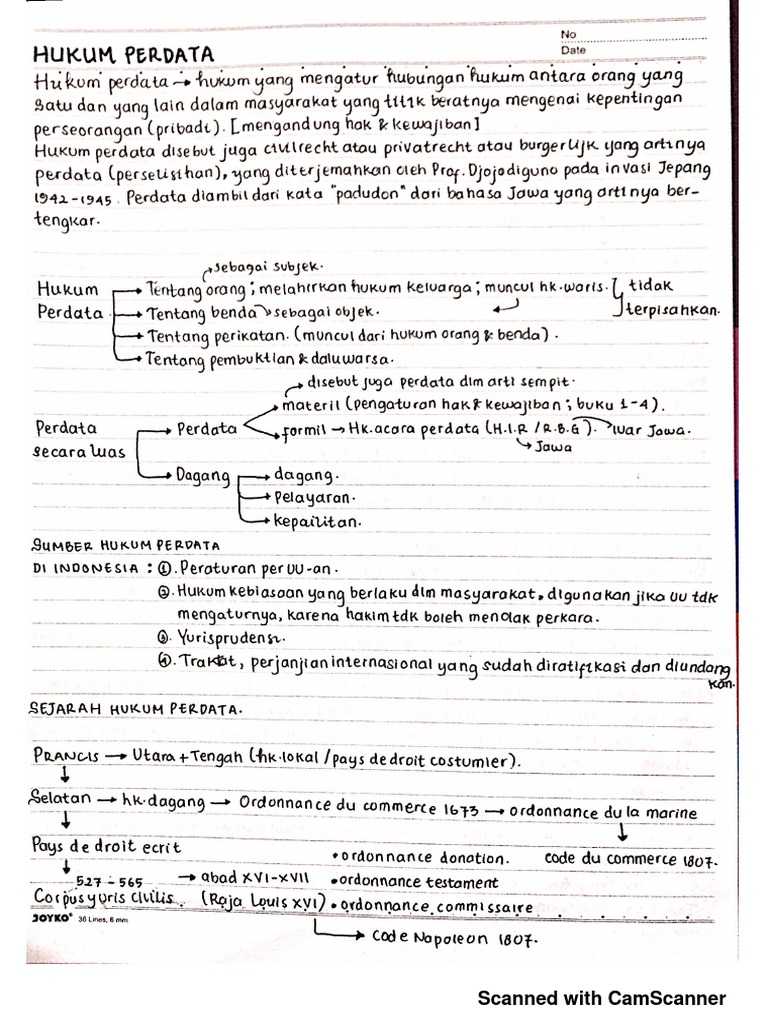 No
Date
HUKUM PERDATA
Hukum perdata → hukum yang mengatur hubungan hukum antara orang yang
satu dan yang lain dalam masyarakat yang titik beratnya mengenai kepentingan
perseorangan (pribadi). [mengandung hak & kewajiban]
Hukum perdata disebut juga civilrecht atau privatrecht atau burgerlijk yang artinya
perdata (perselisihan), yang diterjemahkan oleh Prof. Djojodiguno pada invasi Jepang
1942-1945. Perdata diambil dari kata "padudon" dari bahasa Jawa yang artinya ber-
tengkar.
sebagai subjek.
Hukum Perdata
→ Tentang orang; melahirkan hukum keluarga; muncul hk.waris. tidak terpisahkan.
→ Tentang benda → sebagai objek.
→ Tentang perikatan. (muncul dari hukum orang & benda).
→ Tentang pembuktian & daluwarsa.
disebut juga perdata dlm arti sempit.
materil (pengaturan hak & kewajiban; buku 1-4).
Perdata secara luas → Perdata
formil → Hk.acara perdata (H.I.R / R.B.G). luar Jawa.
Jawa
→ Dagang → dagang.
→ Pelayaran.
→ kepailitan.
SUMBER HUKUM PERDATA
DI INDONESIA : ①. Peraturan per UU-an.
②. Hukum kebiasaan yang berlaku dlm masyarakat, digunakan jika UU tdk
mengaturnya, karena hakim tdk boleh menolak perkara.
③. Yurisprudensi.
④. Traktat, perjanjian internasional yang sudah diratifikasi dan diundang
kan.
SEJARAH HUKUM PERDATA.
PRANCIS → Utara + Tengah (hk.lokal / pays de droit costumier).
↓
Selatan → hk.dagang → Ordonnance du commerce 1673 → ordonnance du la marine
↓ ↓
Pays de droit ecrit
• ordonnance donation. code du commerce 1807.
↓ 527 - 565 → abad XVI-XVII • ordonnance testament
Corpus yuris civilis. (Raja Louis XVI) • ordonnance commissaire
JOYKO® 36 Lines, 6 mm
→ Code Napoleon 1807.
Scanned with CamScanner